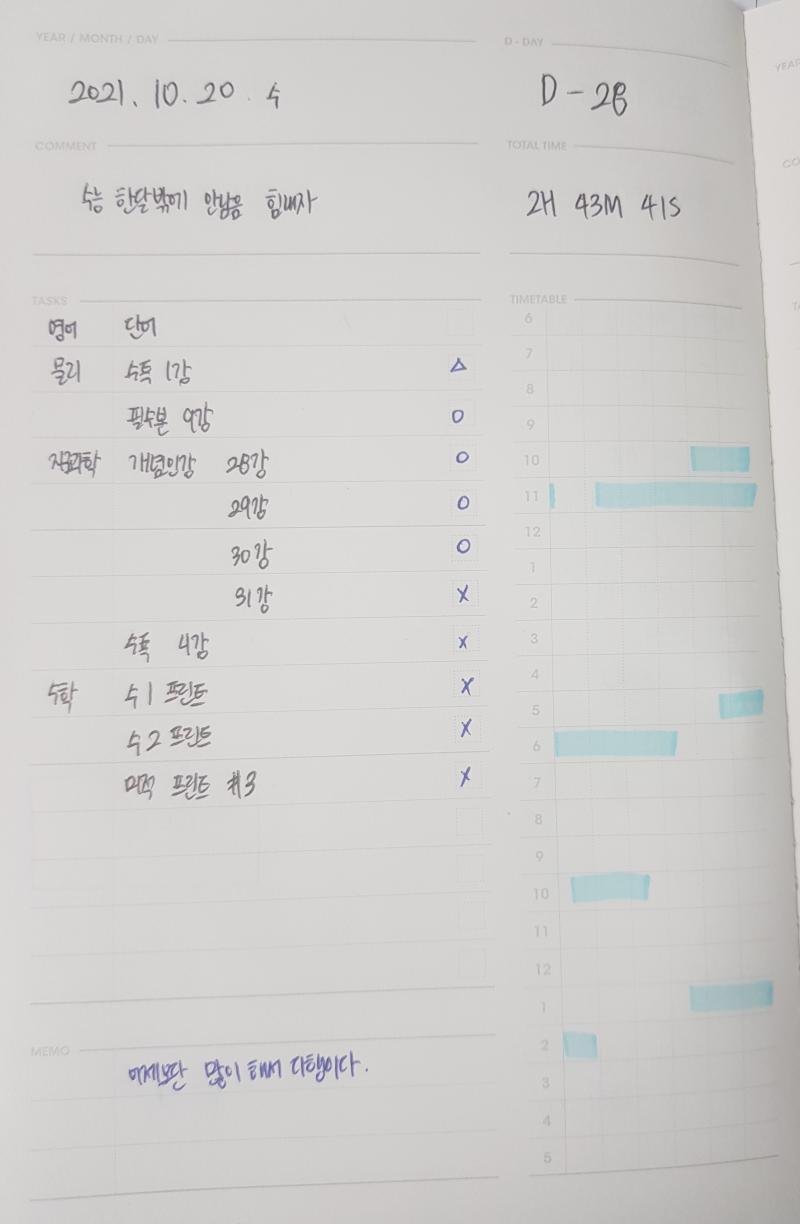 YEAR / MONTH / DAY
2021. 10. 20. 수
D - DAY
D - 28
COMMENT
수능 한달밖에 안남음 힘내자
TOTAL TIME
2H 43M 41S
TASKS
영어 단어
물리 수특 1강 △
필수본 9강 O
지구과학 개념인강 28강 O
29강 O
30강 O
31강 X
수특 4강 X
수학 수1 프린트 X
수2 프린트 X
미적 프린트 #3 X
TIMETABLE
6
7
8
9
10
11
12
1
2
3
4
5
6
7
8
9
10
11
12
1
2
3
4
5
MEMO
어제보단 많이 해서 다행이다.
YEAR